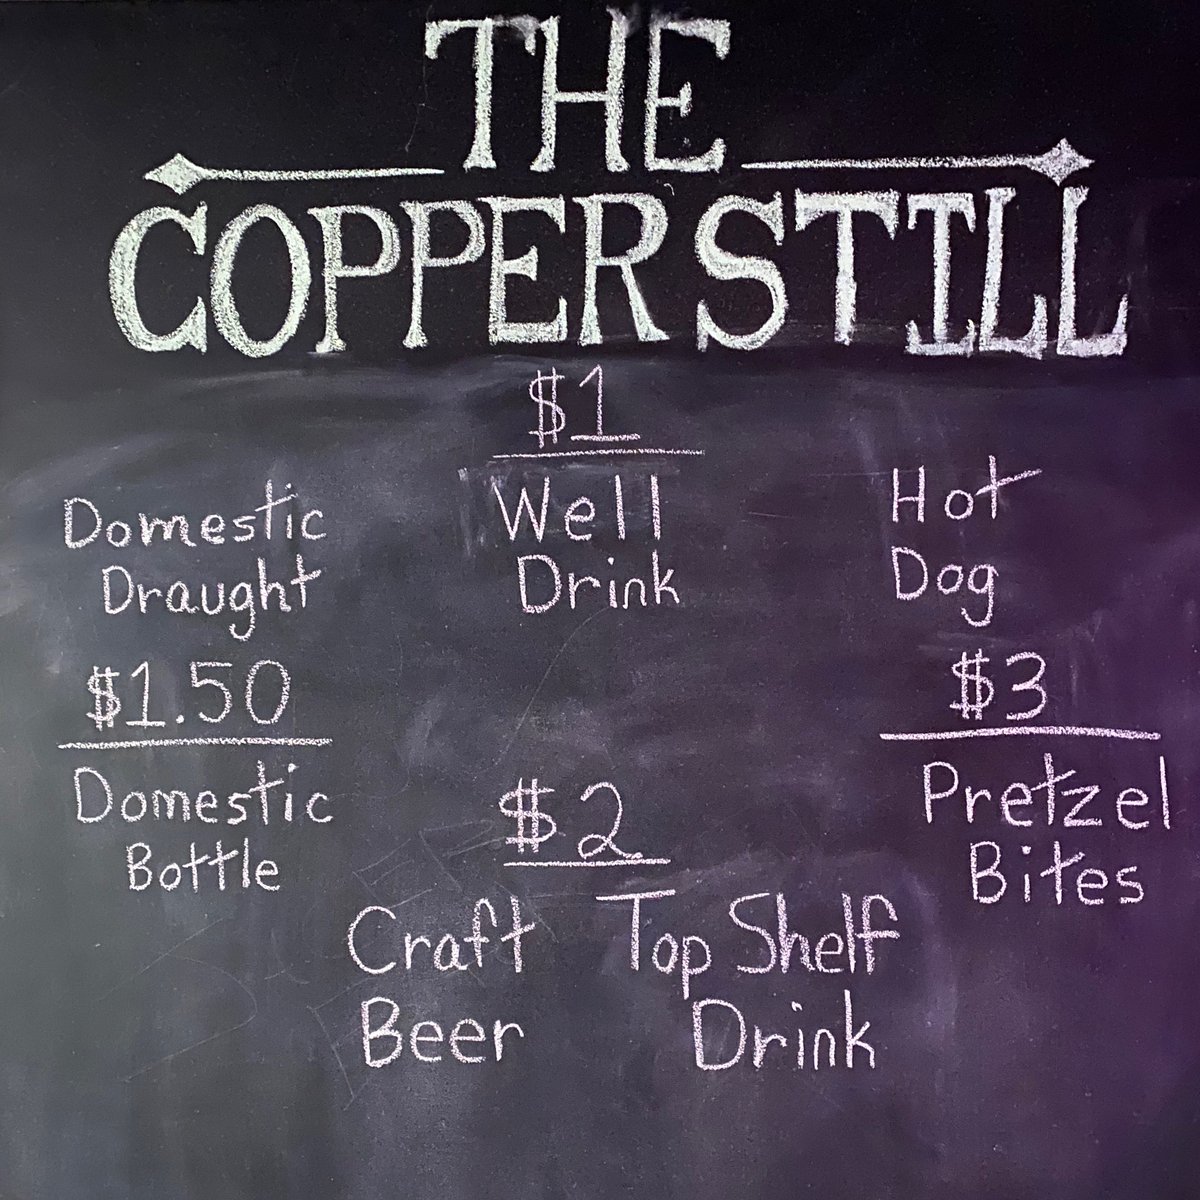 THE
COPPER STILL
$1
Domestic
Draught
Well
Drink
Hot
Dog
$1.50
Domestic
Bottle
$2
Craft
Beer
Top Shelf
Drink
$3
Pretzel
Bites